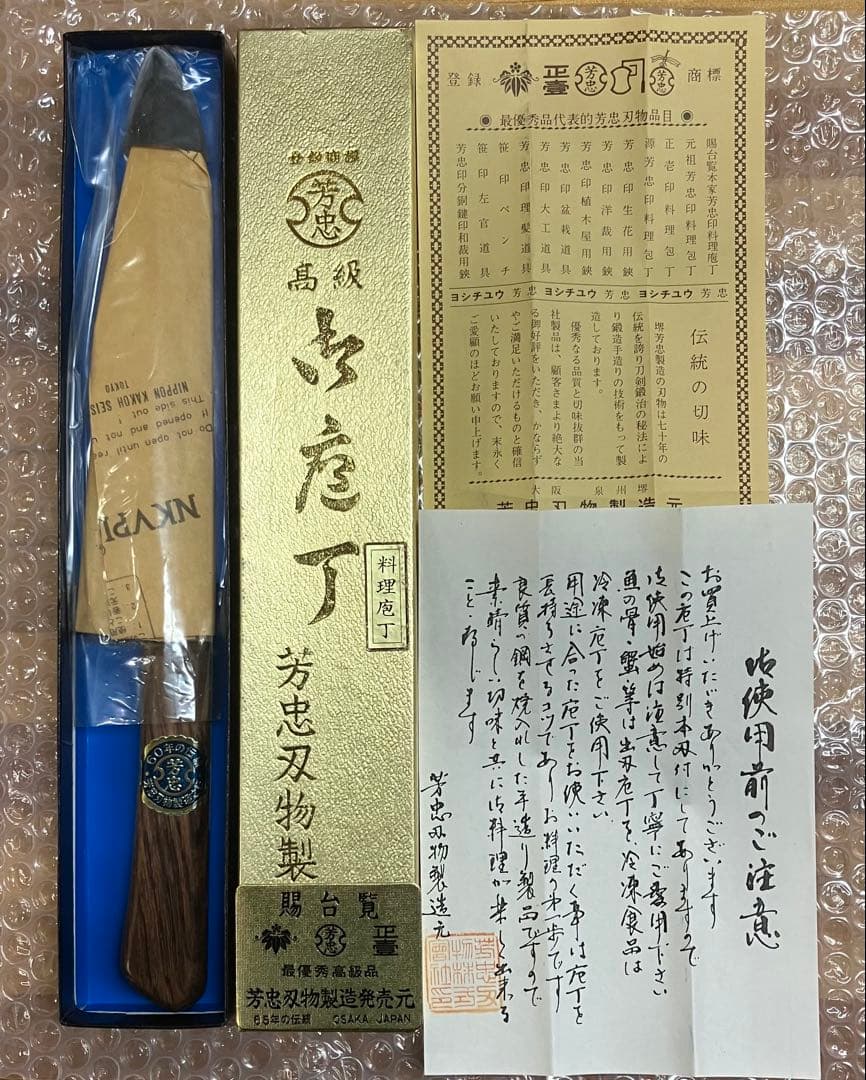 NKVPI
Do not open until re
If opened and not u
This side out
NIPPON KAKOH SEIS
TOKYO
60年の
芳忠
登録商標
芳忠
高級
御庖丁
料理庖丁
芳忠刃物製
賜台覧
芳忠
正壹
最優秀高級品
芳忠刃物製造発売元
65年の伝統 OSAKA JAPAN
登録
正壹
芳忠
芳忠
商標
最優秀品代表的芳忠刃物品目
賜台覧本家芳忠印料理庖丁
元祖芳忠印料理庖丁
正老印料理庖丁
源芳忠印料理庖丁
芳忠印生花用鋏
芳忠印洋裁用鋏
芳忠印植木屋用鋏
芳忠印盆栽道具
芳忠印大工道具
芳忠印理髪道具
笹印ペンチ
笹印左官道具
芳忠印分銅鍵印和裁用鋏
ヨシチユウ 芳忠 ヨシチユウ 芳忠 ヨシチユウ 芳忠
伝統の切味
堺芳忠製造の刃物は七十年の
伝統を誇り刀剣鍛冶の秘法によ
り鍛造手造りの技術をもって製
造しております。
優秀なる品質と切味抜群の当
社製品は、顧客さまより絶大な
る御好評をいただき、かならず
やご満足いただけるものと確信
いたしておりますので、末永く
ご愛顧のほどお願い申上げます。
大阪泉州堺
芳忠刃物製造元
御使用前のご注意
お買上げいただきありがとうございます
この庖丁は特別本刃付にしてありますので
御使用始めは注意して丁寧にご愛用下さい
魚の骨・蟹・等は出刃庖丁を、冷凍食品は
冷凍庖丁をご使用下さい。
用途に合った庖丁をお使いいただく事は庖丁を
長持ちさせるコツでありお料理の第一歩です
良質の鋼を焼入れした手造り製品ですので
素晴らしい切味と共に御料理が楽しく出来る
ことと存じます
芳忠刃物製造元